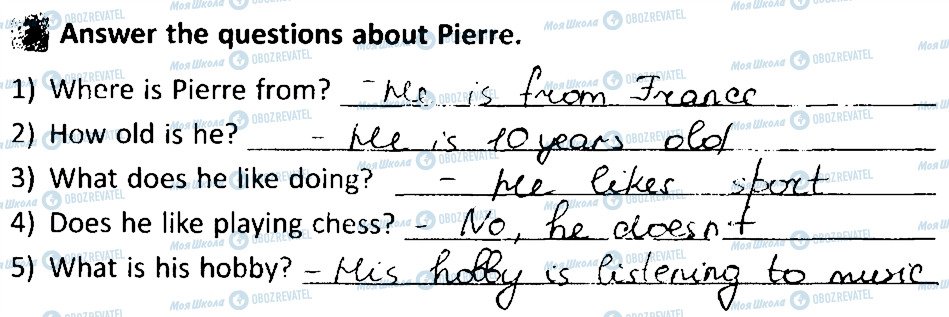 Answer the questions about Pierre.
1) Where is Pierre from? - He is from France
2) How old is he? - He is 10 years old
3) What does he like doing? - He likes sport
4) Does he like playing chess? - No, he doesn't
5) What is his hobby? - His hobby is listening to music